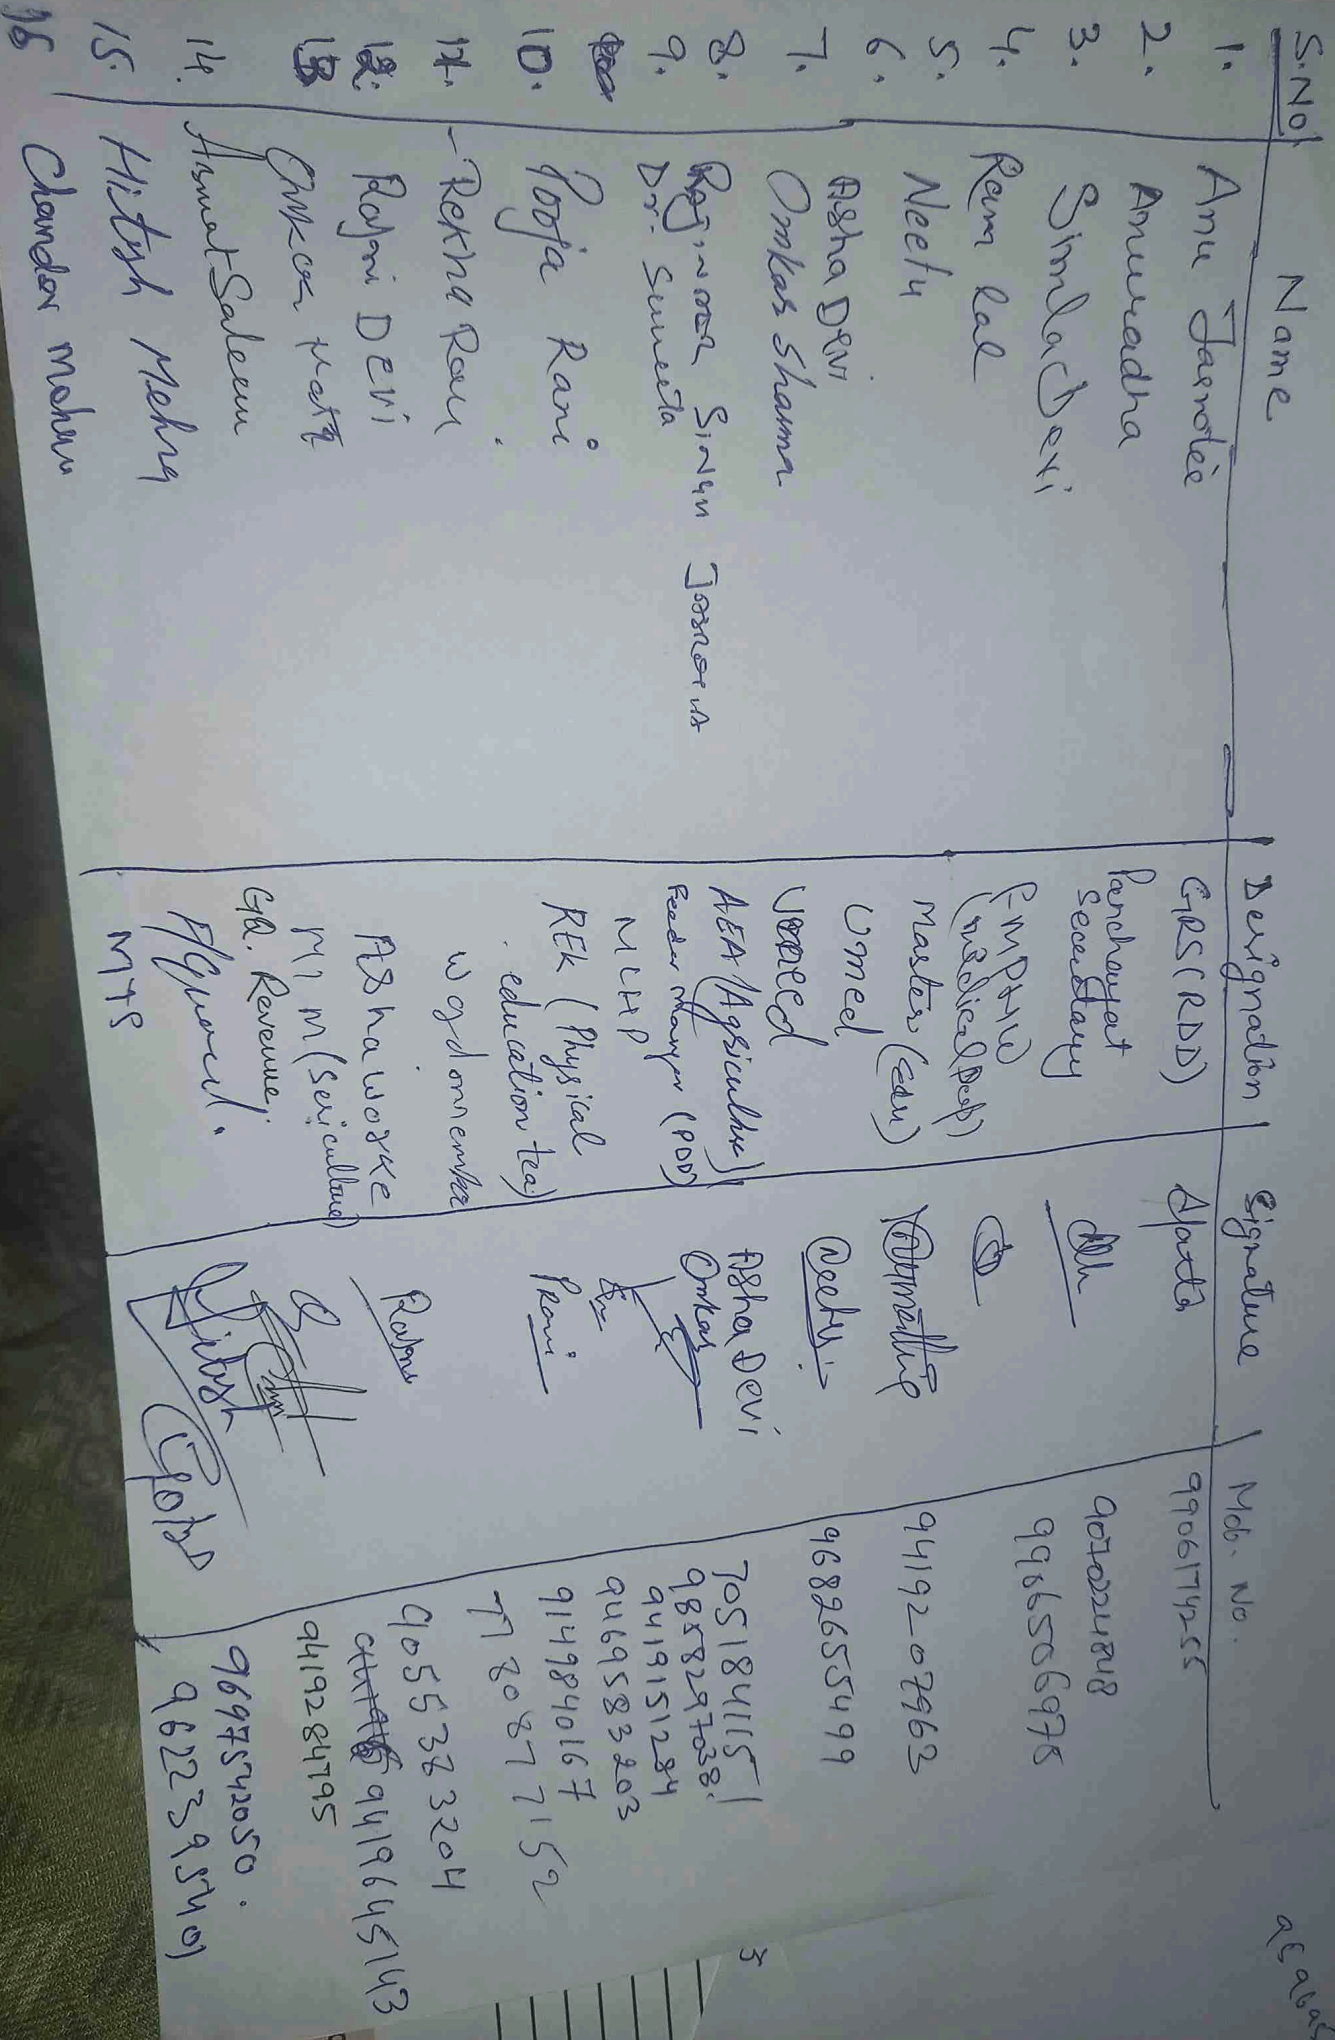 S.No Name Designation Signature Mob. No.
1. Anu Jasrotia GRS (RDD) 9906174255
2. Anuradha Panchayat Secretary
3. Simla Devi FMPHW (medical Dept) 9906506978
4. Ram Lal Master (edu) 9419207963
5. Neetu Umed Neetu 9682655499
6. Asha Devi Umeed Asha Devi 7051841151
7. Omkar Sharma AEA (Agriculture) Omkar 9858297038
8. Rajinder Singh Jasrotia Feeder Manager (PDD) 9419151284
9. Dr. Sumita MLHP 9469583203
10. Pooja Rani REK (Physical education tea) Prani 9149840167
11. Rekha Rani wgdomemka 7780877152
12. Rajni Devi Asha worke Rajni 9055383204
13. Onkar Nath M1M (Sericulture) 9419645143
14. Asmat Saleem Gd. Revenue. 9419284795
15. Hitesh Mehra Hitesh 9697542050.
16 Chander Mohan MTS 9622395401